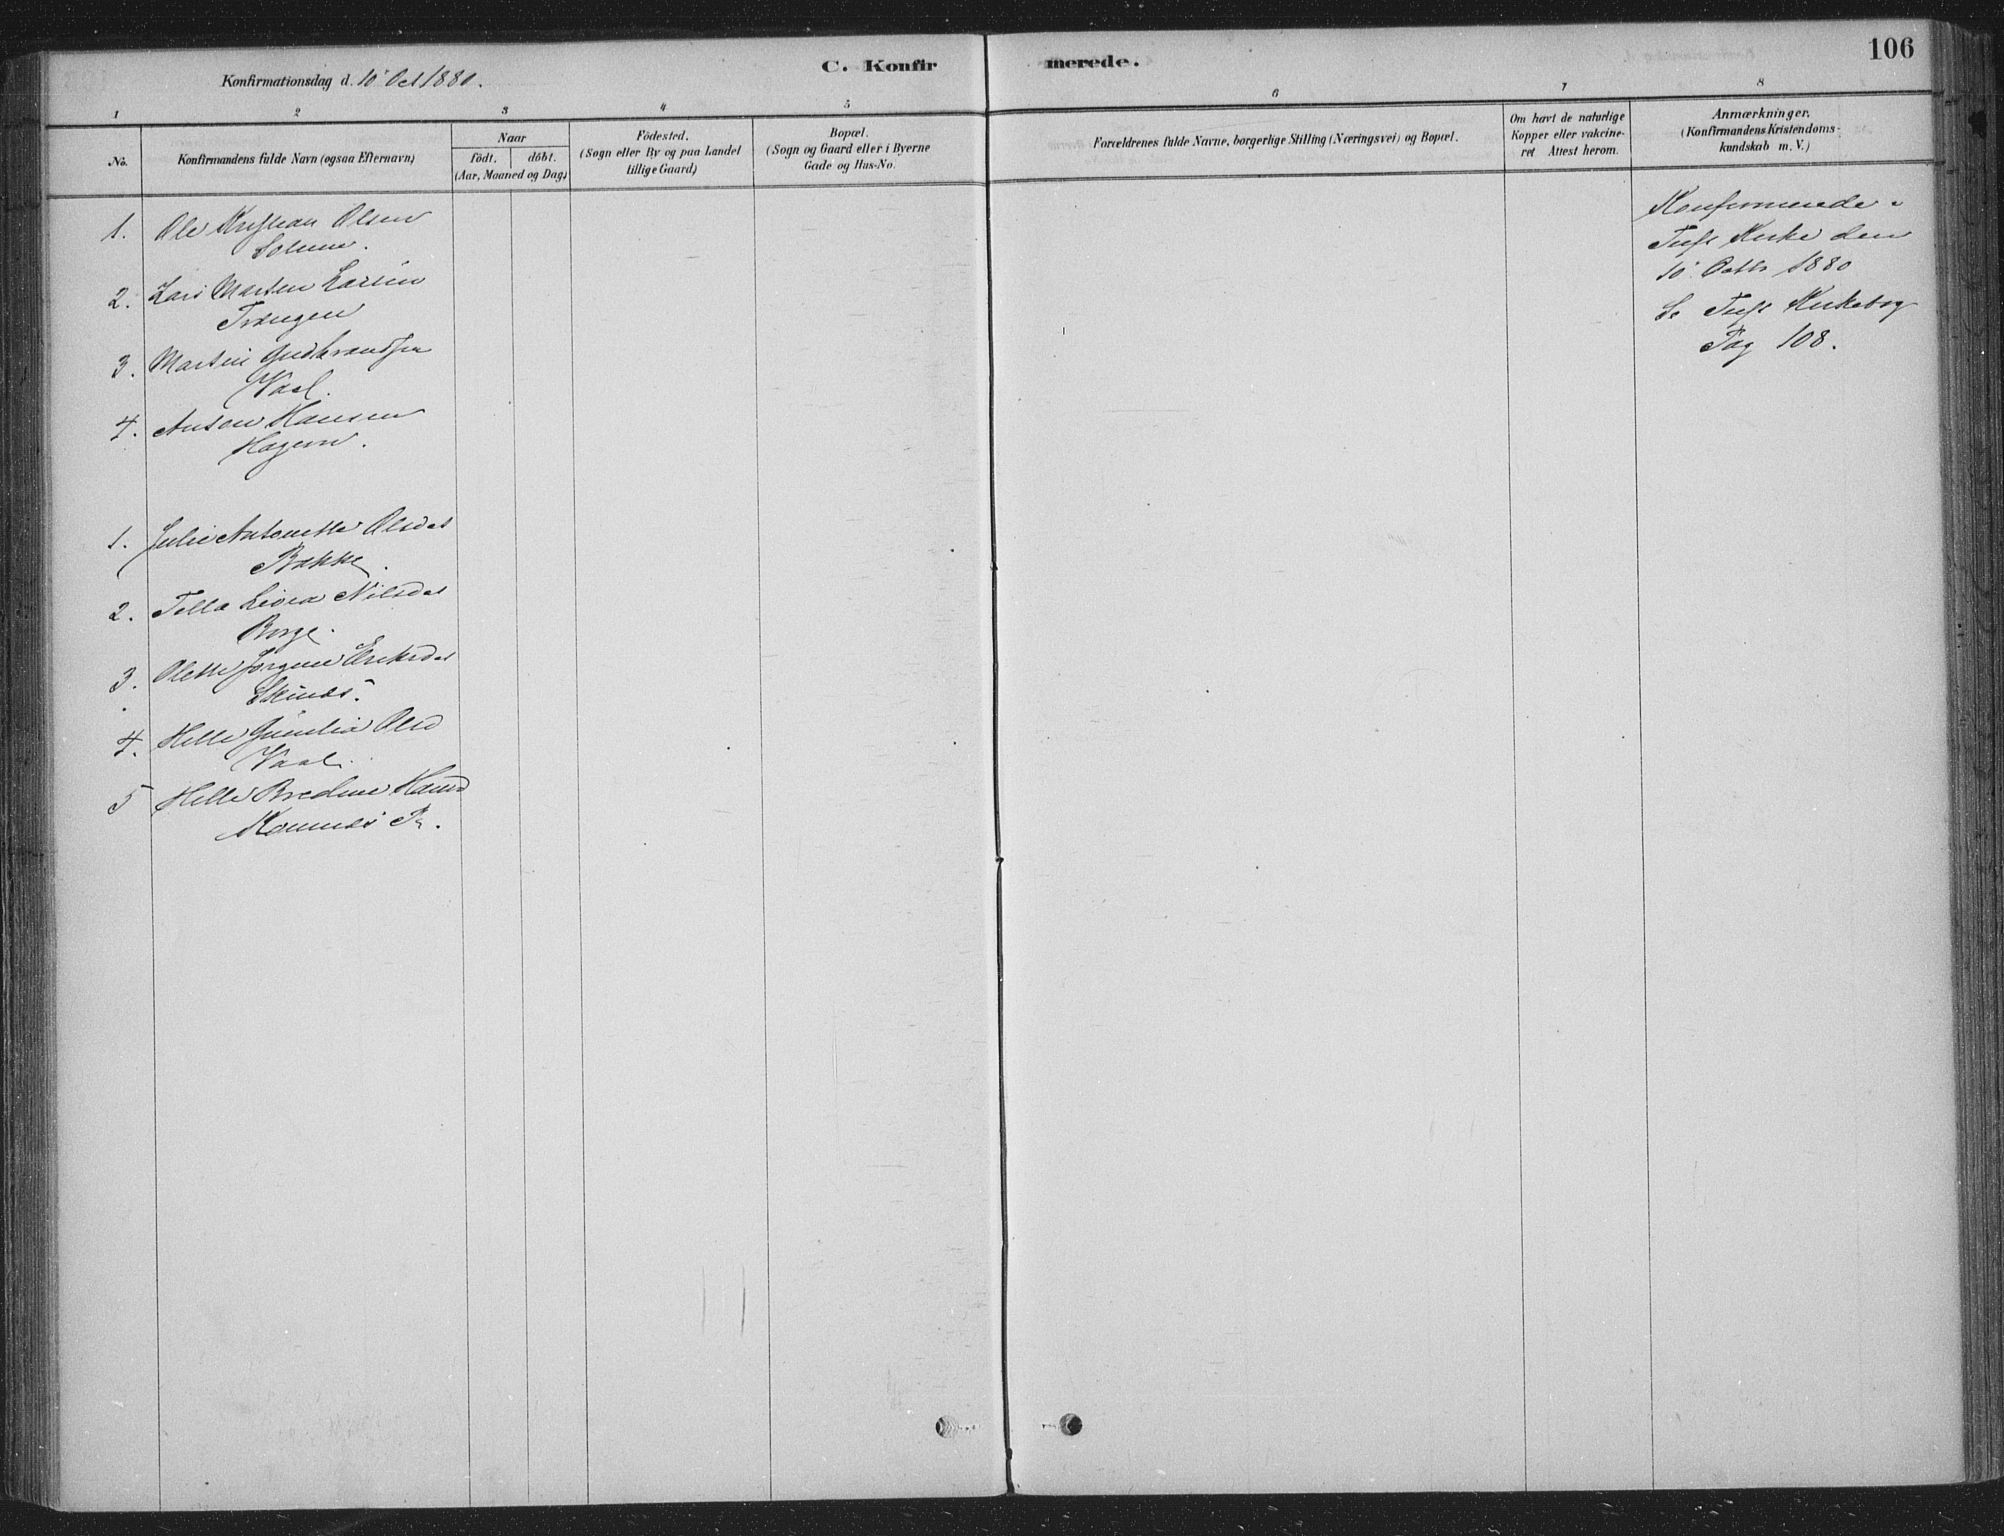 106
C. Konfirmerede.
Konfirmationsdag d. 10 Oct 1880.
1 2 3 4 5 6 7 8
No.
Konfirmandens fulde Navn (ogsaa Efternavn)
Naar
födt. döbt.
(Aar, Maaned og Dag)
Födested.
(Sogn eller By og paa Landet
tillige Gaard)
Bopæl.
(Sogn og Gaard eller i Byerne
Gade og Hus-No.
Forældrenes fulde Navne, borgerlige Stilling (Næringsvei) og Bopæl.
Om havt de naturlige
Kopper eller vakcine-
ret Attest herom.
Anmærkninger,
(Konfirmandens Kristendoms-
kundskab m. V.)
1. Ole Kristian Olsen
2. Lars Martin Larsen
Trangen
3. Martin Gudbrandsen
Vaal.
4. Anton Hansen
Hagern.
1. Julie Antonette Olsdat
Bakke.
2. Nilsdat
Borge.
3. Olette Jorgine Eriksdat
4. Helle Gunilia Olsd
Vaal.
5 Helle Bredine Hansd
Konfirmerede i
Kirke den
10 Octbr 1880
Se Kirkebog
Pag 108.